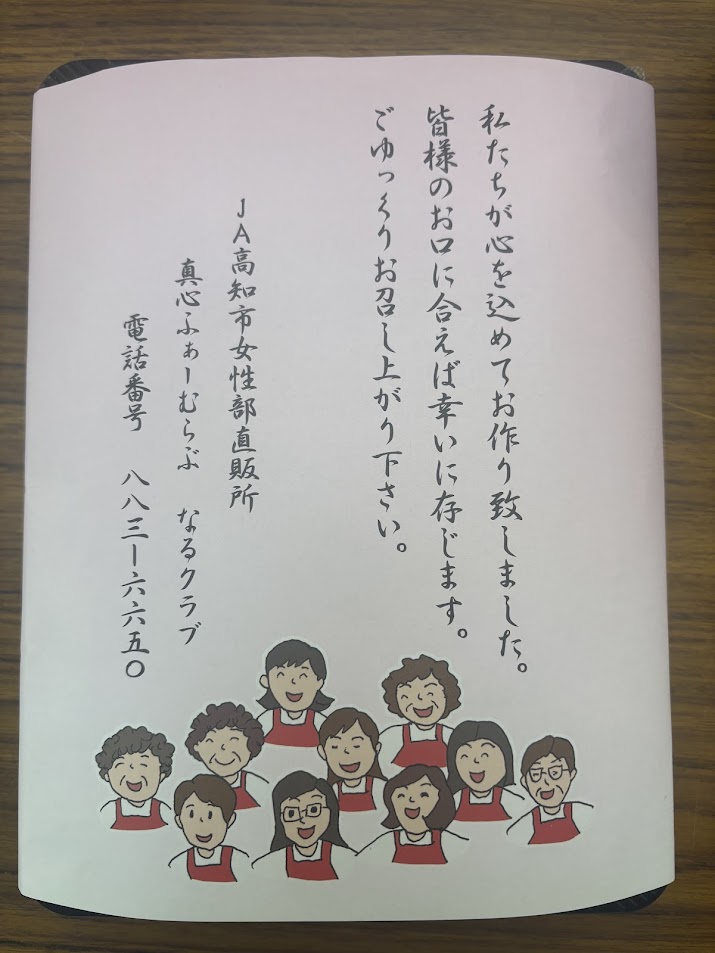 私たちが心を込めてお作り致しました。
皆様のお口に合えば幸いに存じます。
ごゆっくりお召し上がり下さい。
JA高知市女性部直販所
真心ふぁーむらぶ なるクラブ
電話番号 八八三ー六六五〇